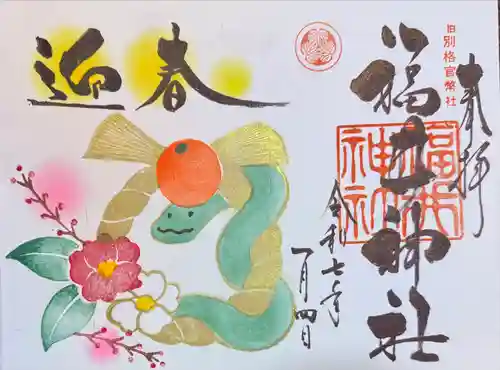 奉拝
旧別格官幣社
福井神社
福井神社
令和七年
一月四日
迎春